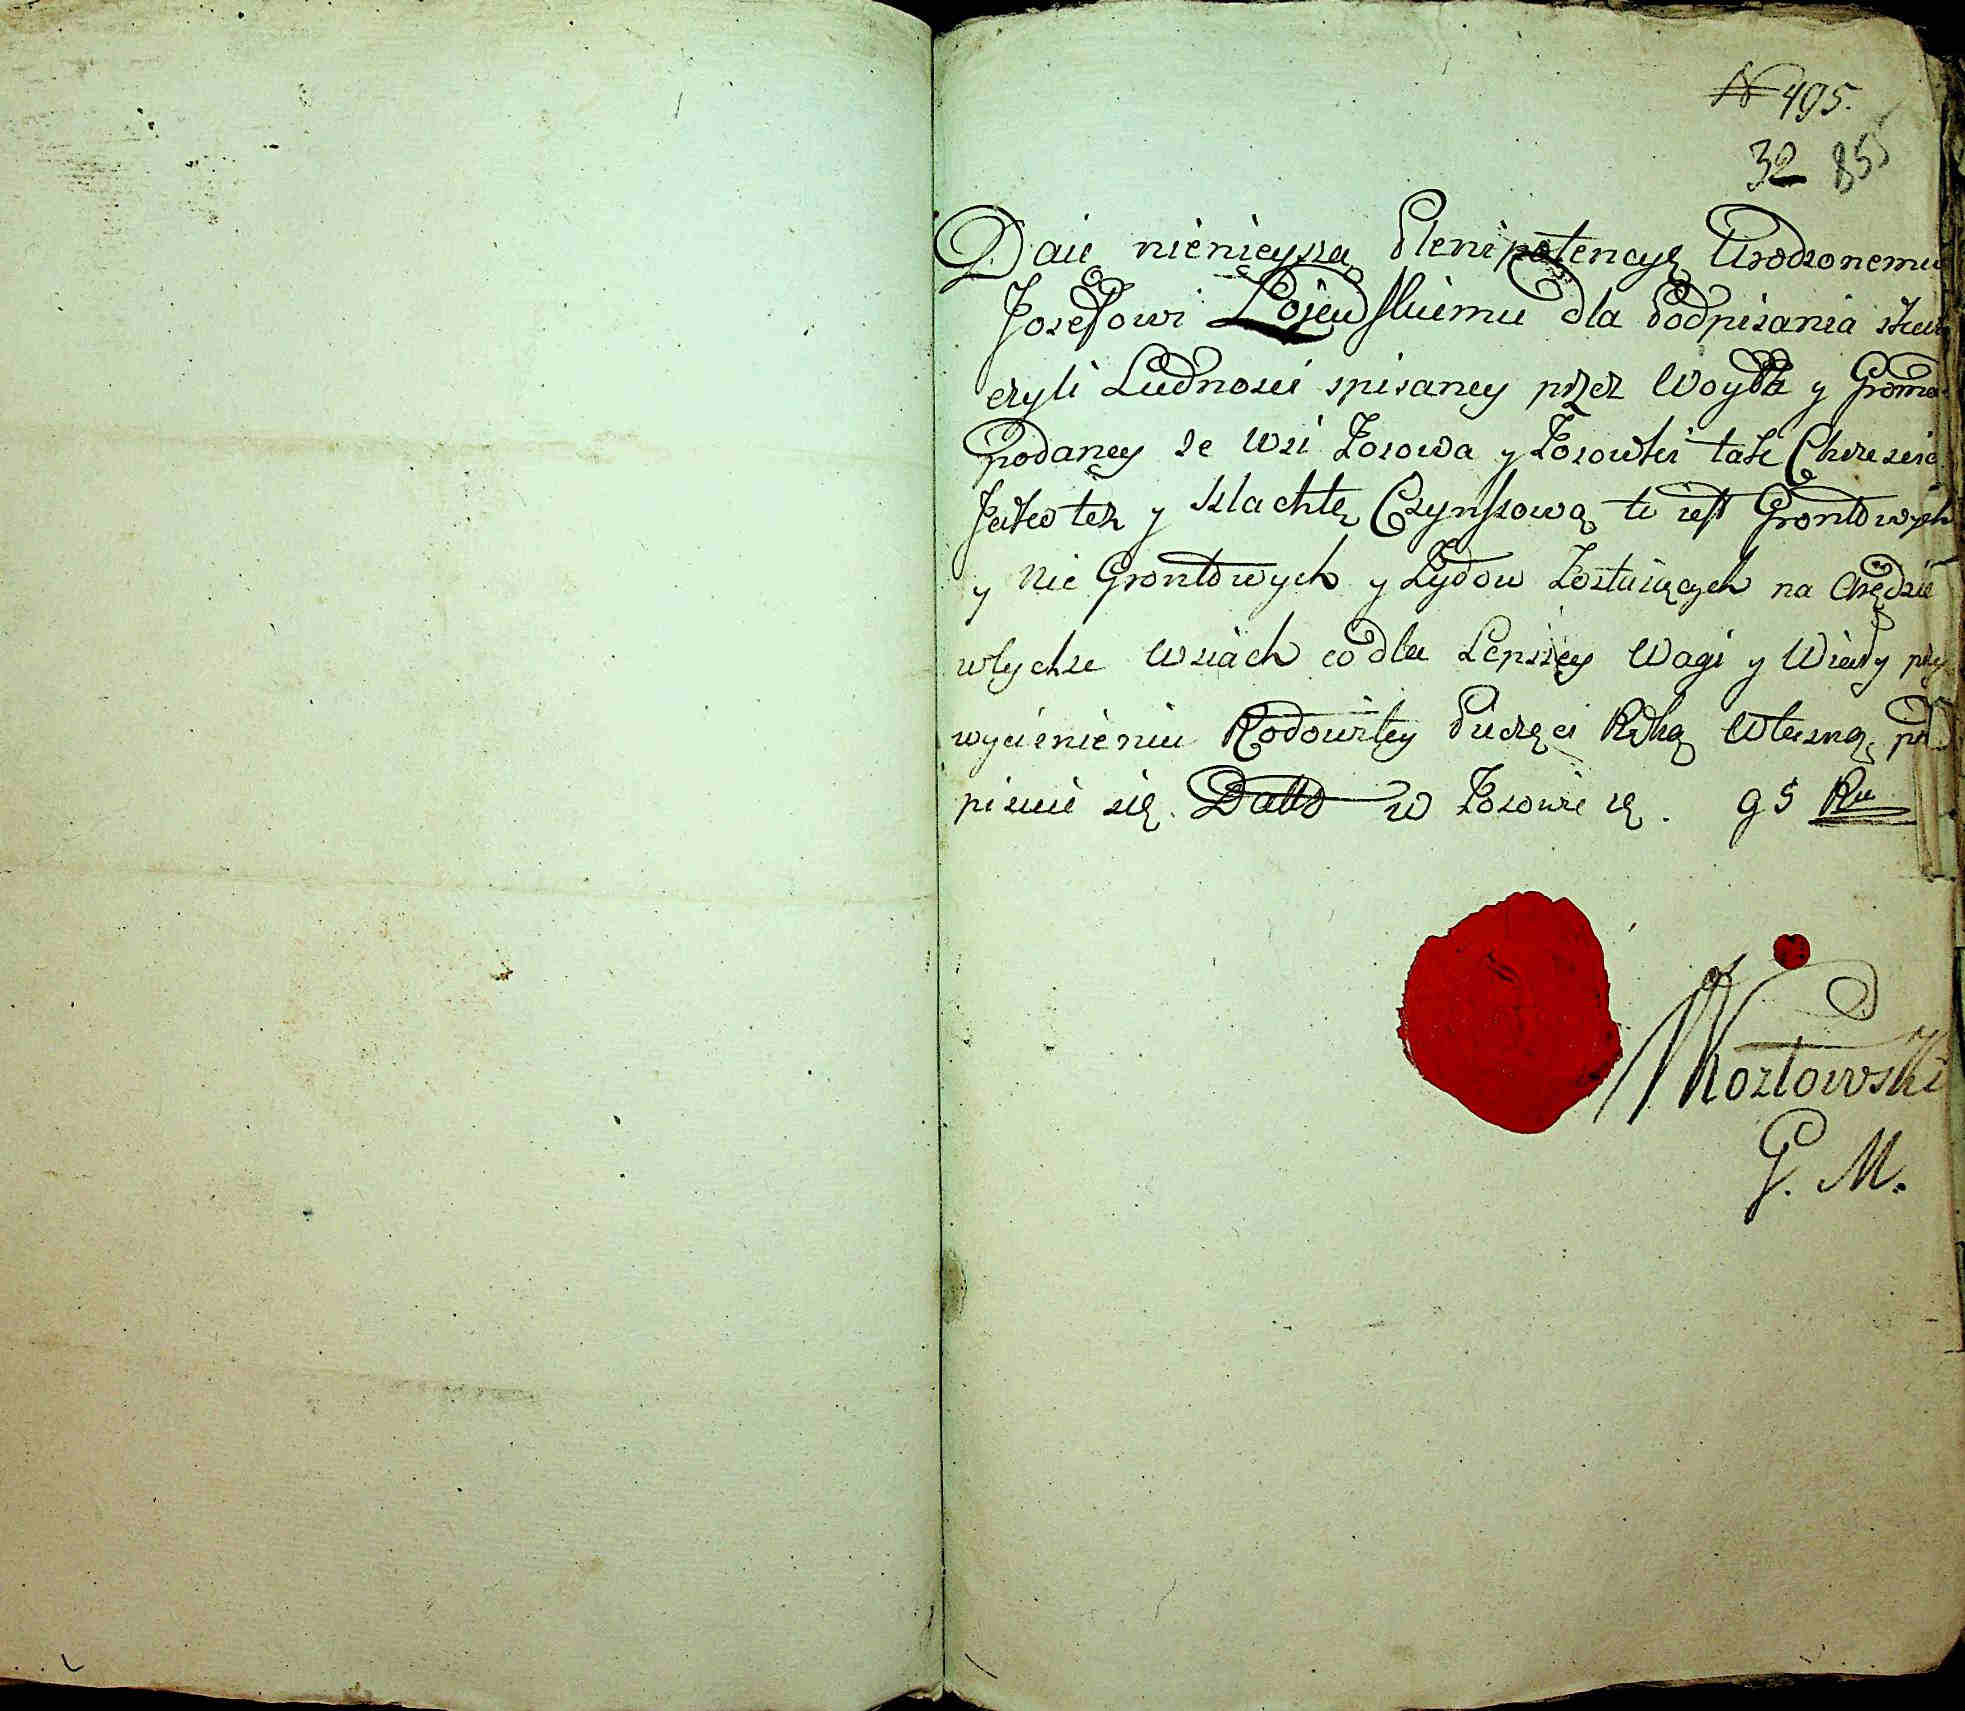 № 495.
32 85
Daię nienieyszą Plenipotencyę Urodzonemu
Jozefowi Łojewskiemu dla Podpisania
czyli Ludnosci spisaney przez Woyta y Groma
podaney ze Wsi Łosowa y Łosowki tak Chrzescia
Jako też y Szlachtę Czynszową to iest Gróntowych
y Nie Gróntowych y Zydow Zostaiących na Arędzie
wtychże Wsiach co dla Lepszey Wagi y Wiary przy
wycisnieniu Rodowitey Pieczęci Ręką Własną pod
pisuię się. Datto w Łosowie 95 Ru
Kozłowski
G. M.